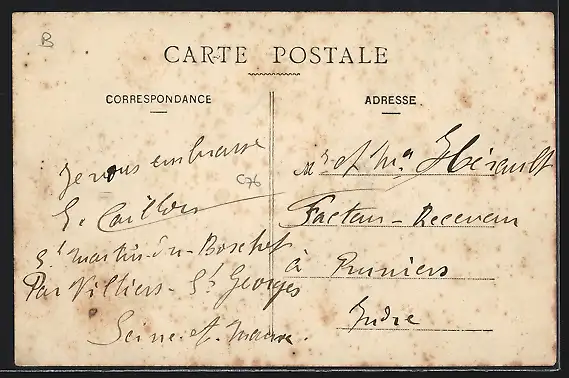 B
CARTE POSTALE
CORRESPONDANCE
ADRESSE
Je vous embrasse
C76
E. Caillou
St Martin-du-Boschet
Par Villiers-St Georges
Seine-et-Marne.
Mr et Mme Hérault
Facteur-Receveur
à Pruniers
Indre